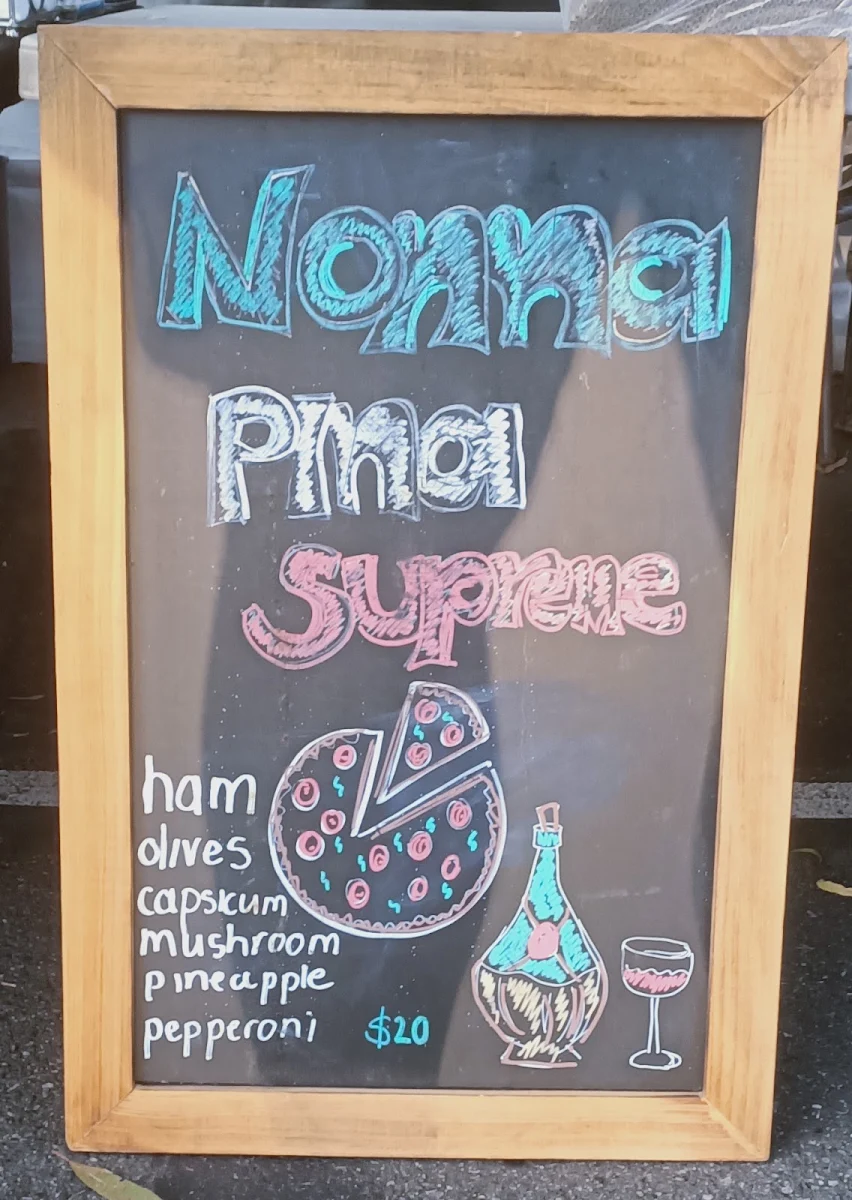 Nonna
Pina
Supreme
ham
olives
capsicum
mushroom
pineapple
pepperoni $20